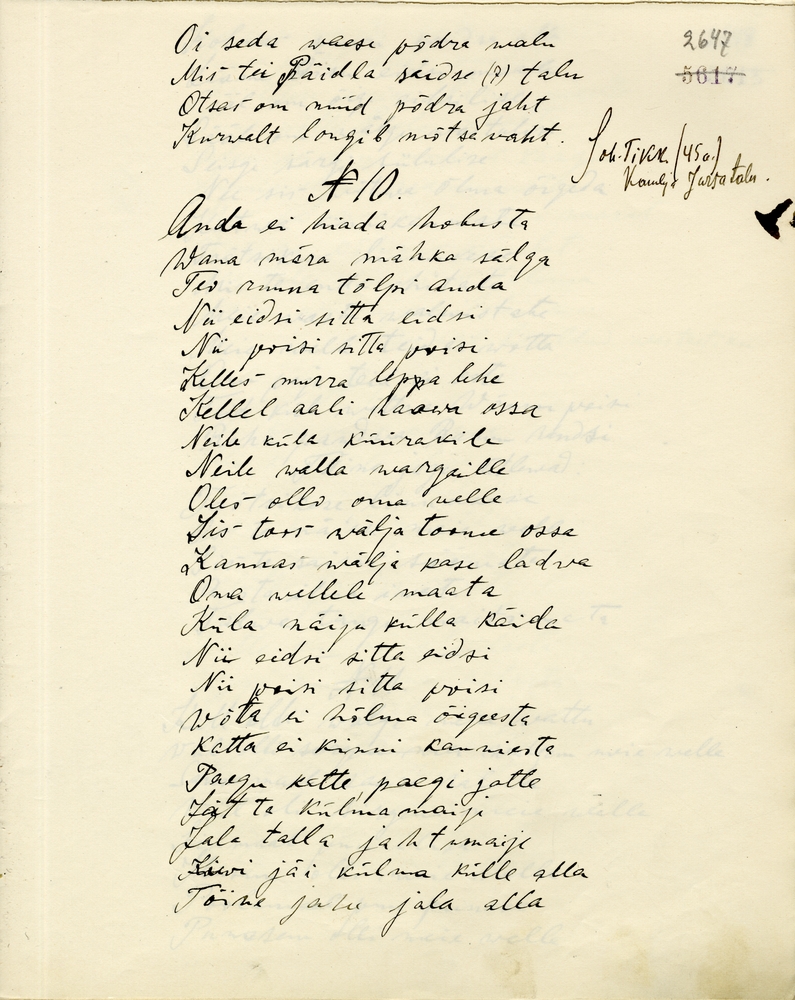 2647
5617
Oi seda waese põdra walu
Mis tei Päidla säidse (?) talu
Otsas om nüüd põdra jaht
Kurwalt longib mõtsawaht.
Joh. Tikk. (45a.)
talu.
№ 10.
Anda ei hiada hobusta
Wana mära mähka sälga
Teo runna tõlpi anda
Nii eidsi sitta eidsi
Nii poisi sitta poisi
Kelles murra leppa lehe
Kellel aali haawa ossa
Neile küla küürakile
Neile walla wargaille
Oles ollo oma welle
Sis toos wälja toome ossa
Kannas wälja kase ladwa
Oma wellele maata
Küla näiju külla käida
Nii eidsi sitta eidsi
Nii poisi sitta poisi
Wõta ei hõlma õigeesta
Katta ei kinni kauniesta
Paegu kette, paegi jätte
Jät ta külma maije
Jala talla jahtumaije
Kiwi jäi külma külle alla
Tõine jala alla